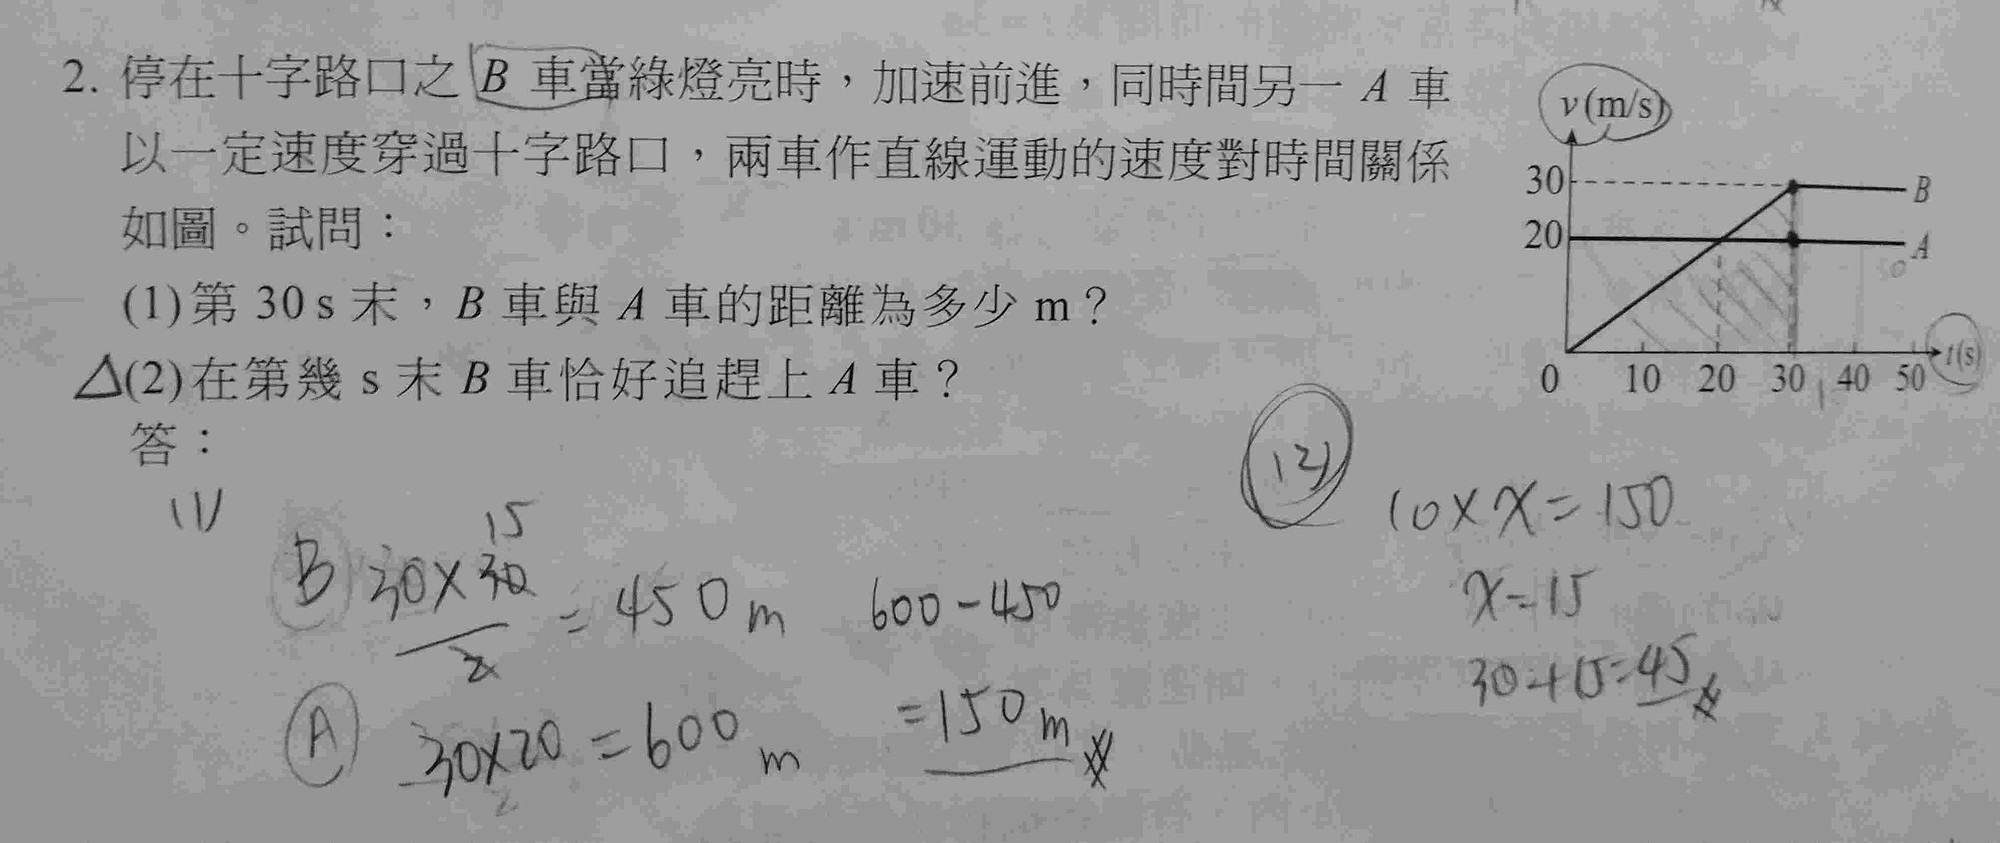 2. 停在十字路口之 B 車當綠燈亮時，加速前進，同時間另一 A 車
以一定速度穿過十字路口，兩車作直線運動的速度對時間關係
如圖。試問：
(1)第 30 s 末，B 車與 A 車的距離為多少 m？
△(2)在第幾 s 末 B 車恰好追趕上 A 車？
答：
v(m/s)
30
B
20
A
0 10 20 30 40 50 t(s)
(1)
15
B 30×30
2
= 450 m
600-450
A 30×20 = 600 m
=150 m
(2)
10×x=150
x=15
30+15=45